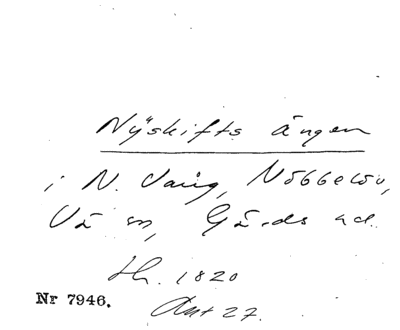 Nyskifts ängen
i N. Vang, Nöbbelöv,
Vä sn, Gärds hd.
Hh. 1820
Nr 7946. Akt 27.